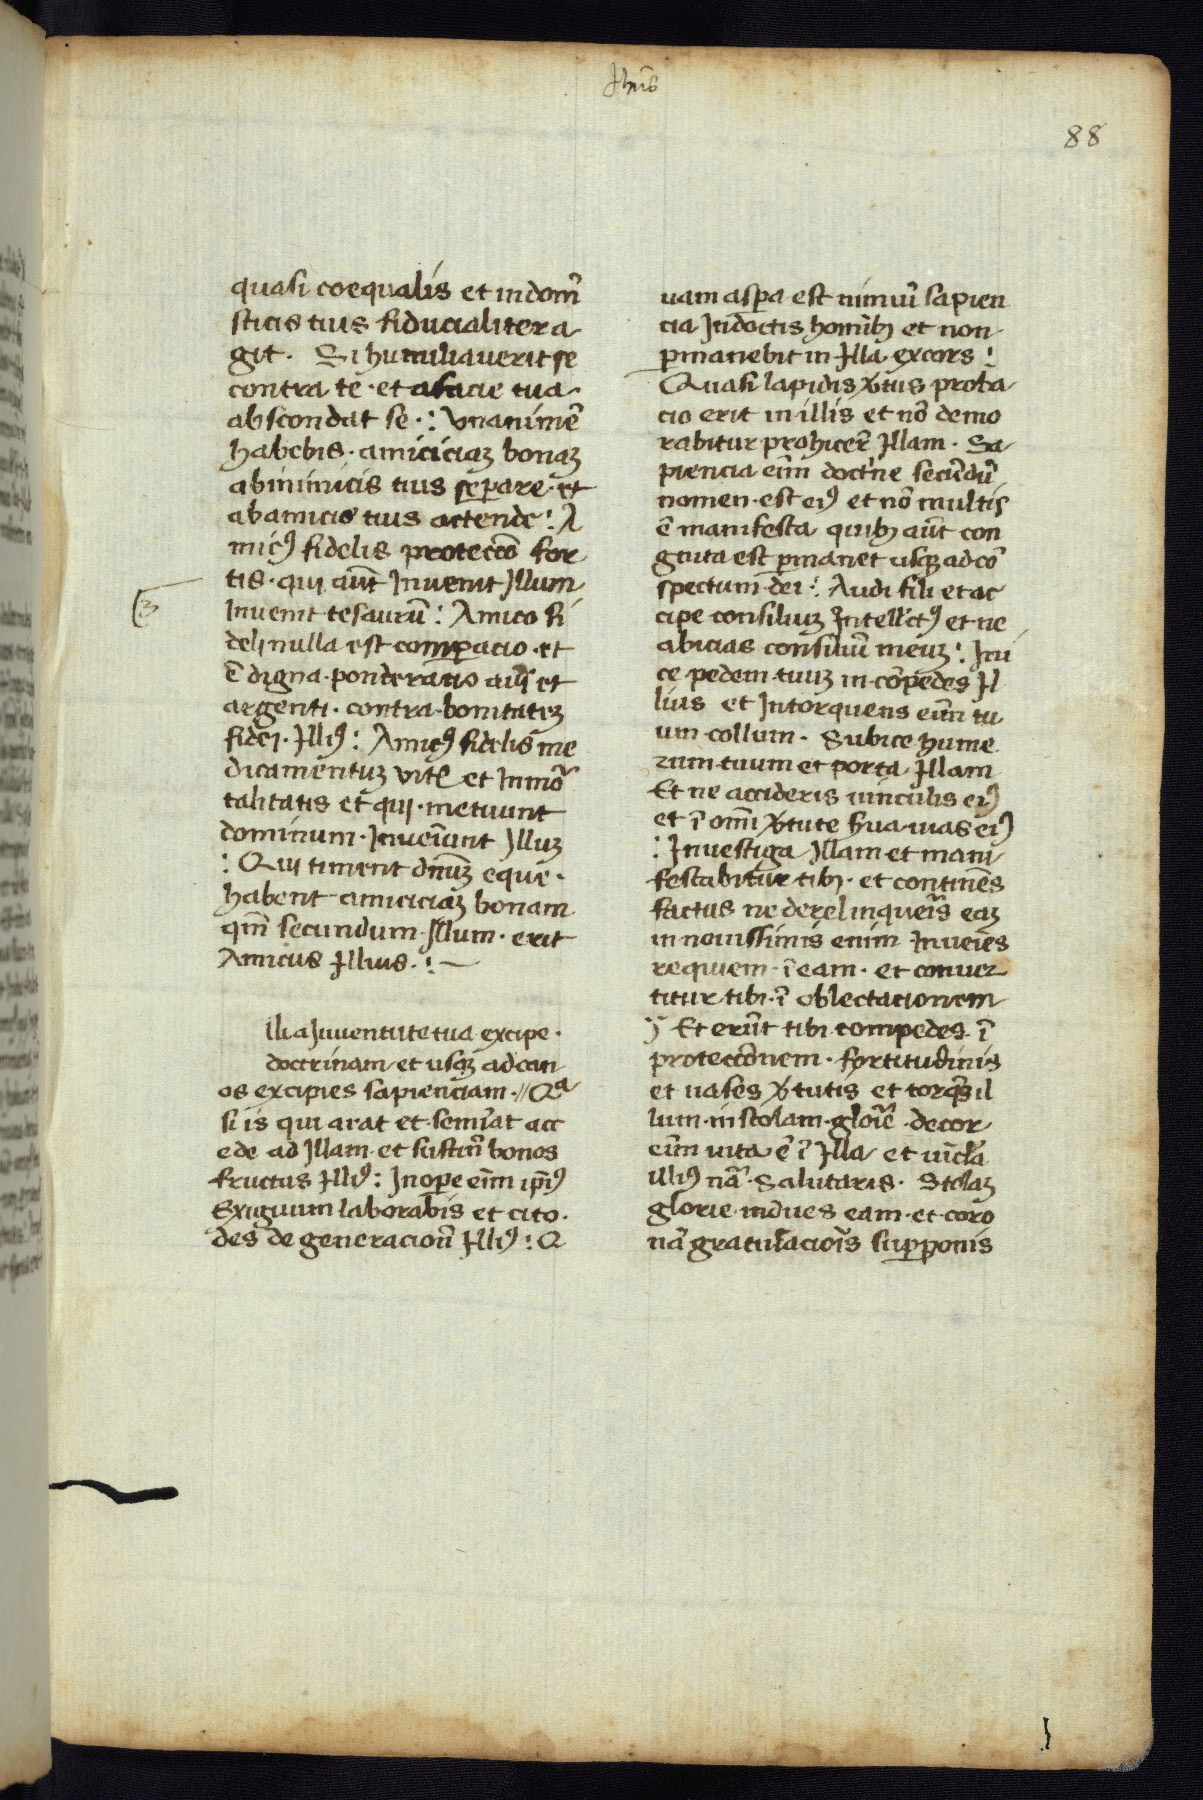 88
quasi coequalis et in dom̄
sticis tuis fiducialiter a
git · Si humiliaverit se
contra te · et a facie tua
abscondat se · : Vnanimē
habebis · amiciciaȝ bonaȝ
ab inimicis tuis separe · et
ab amicis tuis attende : A
micꝰ fidelis proteccō for
tis · qui aūt Invenit Illum
Invenit tesaurū : Amico fi
deli nulla est comꝑacio · et
ē digna · ponderatio auri et
argenti · contra · bonitateȝ
fidei · Illiꝰ : Amicꝰ fidelis me
dicamentuȝ vite et Inmor
talitatis et qui · metuunt
dominum · Inveniunt Illuȝ
: Qui timent dnūȝ eque ·
habent amiciciaȝ bonam
qm̄ secundum · Illum · erit
Amicus Illius · :
ili a Juventute tua excipe ·
doctrinam · et usqȝ ad can
os excipies sapienciam · // Qa
si is qui arat et semīat acc
ede ad Illam · et sustin̄ bonos
fructus Illiꝰ : In opere eīm ip̄iꝰ
Exiguum laborabis et cito ·
des de generacioīi Illiꝰ : Q
uam aspa est nimiū sapien
cia Indoctis homībꝫ et non
ꝑmanebit in Illa excors :
Quasi lapidis v̓tus proba
cio erit in illis et nō demo
rabitur prohicere Illam · Sa
piencia eīm doctrīne secundū
nomen · est eiꝰ et nō multis
ē manifesta quibꝫ aūt con
gnita est ꝑmanet usqȝ ad cō
spectum dei : Audi fili et ac
cipe consiliuȝ Intellectꝰ et ne
abicias consiliū meuȝ : Ini
ce pedem · tuuȝ in cōpedes Il
lius et In torquens eīm tu
um collum · Subice hume
rum · tuum et porta · Illam
Et ne accideris vinculis eiꝰ
et ī omī v̓tute serva vias eiꝰ
: Investiga Illam et mani
festabitur tibi · et continēs
factus ne derelinqueris eaȝ
in novissimis enim Invenies
requiem · ī eam · et conver
titur tibi · ī oblectacionem
Et erūt tibi compedes ī
proteccōnem · fortitudinis
et vases v̓tutis et torqs il
lum · in stolam · glorie · decor
eīm vita ē ī Illa et vīcla
illiꝰ natā · Salutaris · Stolaȝ
glorie · indues eam · et · coro
nā gratulacionis supponis